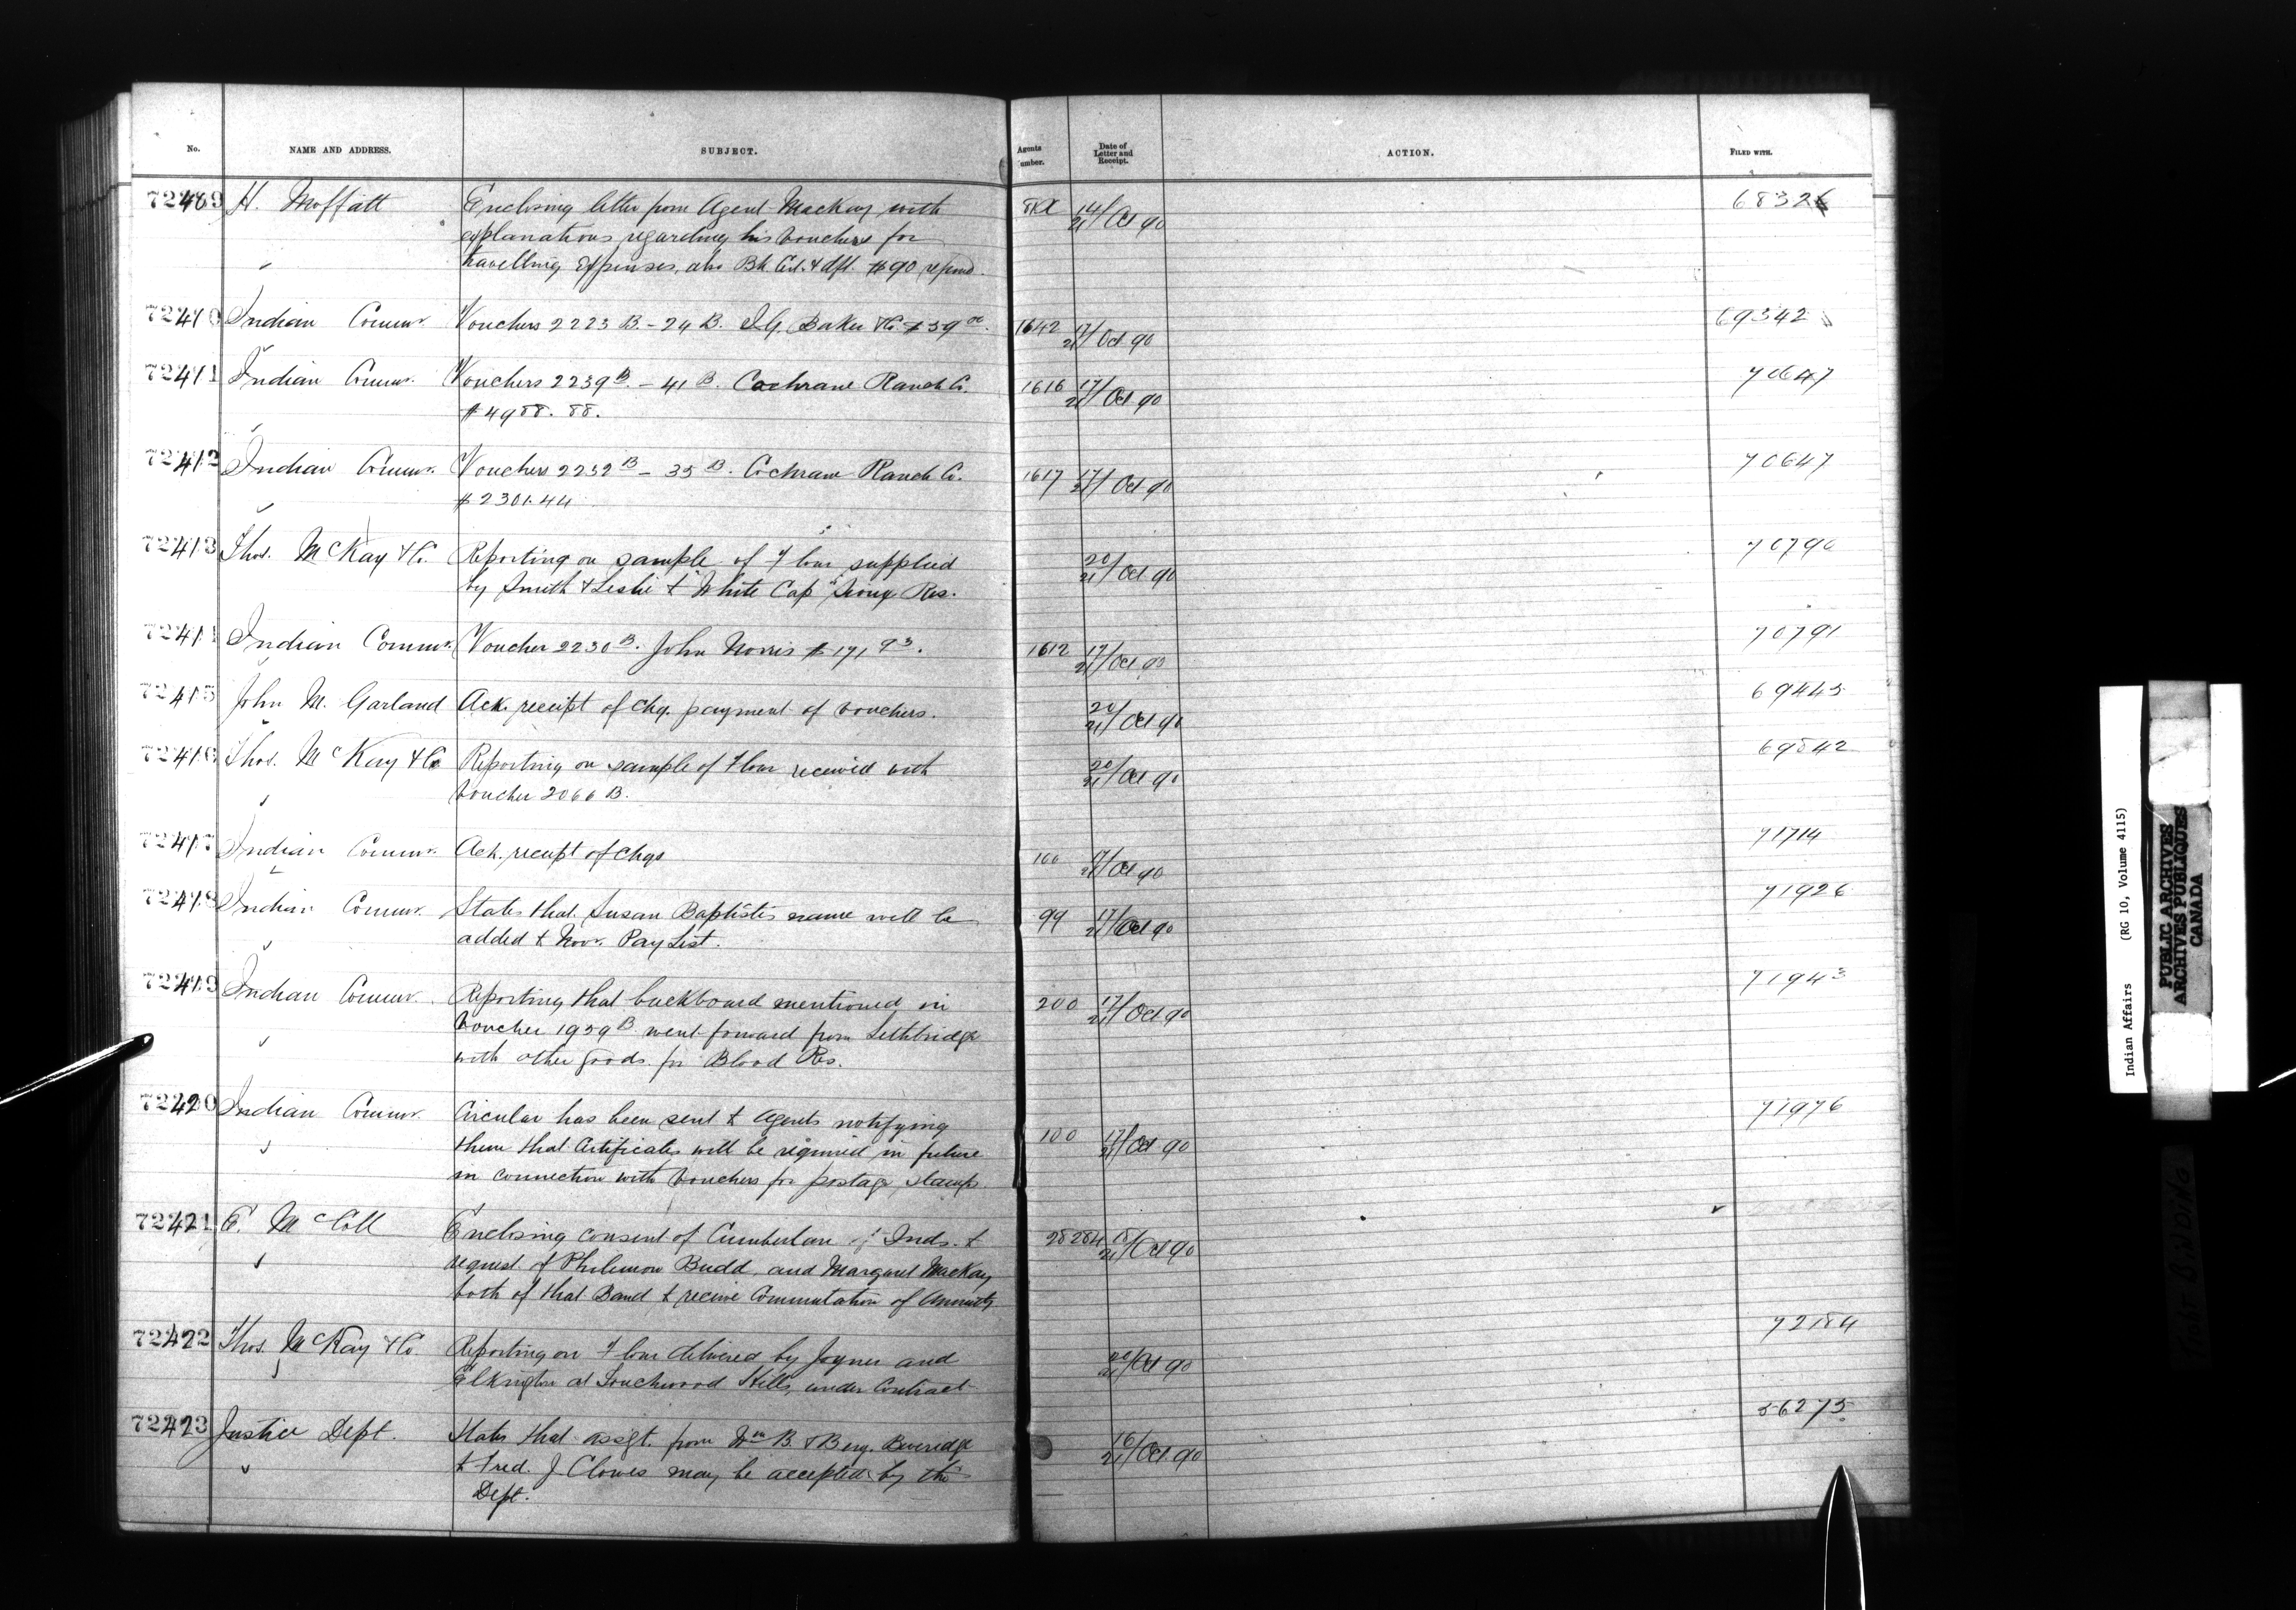 No. NAME AND ADDRESS. SUBJECT. Agents umber. Date of Letter and Receipt. ACTION. FILED WITH.
72409 H. Moffatt Enclosing letter from Agent Mackay with 14/21 Oct 90 68326
explanations regarding his vouchers for
travelling expenses, also Bk. Cert. & dft. $90 refund.
72410 Indian Commr. Vouchers 2223 B. - 24 B. I.G. Baker & Co. $59 00. 1642 17/21 Oct 90 69342
72411 Indian Commr. Vouchers 2239 B. - 41 B. Cochrane Ranch Co. 1616 17/21 Oct 90 70647
$4988.88.
72412 Indian Commr. Vouchers 2232 B - 35 B. Cochrane Ranch Co. 1617 17/21 Oct 90 70647
$2301.44
72413 Thos. McKay & Co. Reporting on sample of Flour supplied 20/21 Oct 90 70790
by Smith & Leslie to "White Cap" Sioux Res.
72414 Indian Commr. Voucher 2230 B. John Norris $171 93. 1612 17/21 Oct 90 70791
72415 John M. Garland Ack. receipt of chq. payment of vouchers. 20/21 Oct 90 69445
72416 Thos. McKay & Co Reporting on sample of Flour received with 20/21 Oct 90 69842
voucher 2066 B.
72417 Indian Commr. Ack. receipt of chqs 100 17/21 Oct 90 71714
72418 Indian Commr. States that Susan Baptistes name will be 99 17/21 Oct 90 71926
added to Novr. Pay List.
72419 Indian Commr. Reporting that buckboard mentioned in 200 17/21 Oct 90 71943
voucher 1959 B went forward from Lethbridge
with other goods for Blood Res.
72420 Indian Commr. Circular has been sent to Agents notifying 100 17/21 Oct 90 71976
them that Certificates will be required in future
in connection with vouchers for postage stamps
72421 E. McColl Enclosing consent of Cumberland Inds. to 28284 18/21 Oct 90
request of Philemon Budd, and Margaret MacKay
both of that Band to receive Commutation of Annuity
72422 Thos. McKay & Co. Reporting on Flour delivered by Joyner and 20/21 Oct 90 72184
Elkington at Touchwood Hills, under Contract
72423 Justice Dept. States that assgt. from Wm B. & Benj. Beveridge 16/21 Oct 90 56275
to Fred. J. Clowes may be accepted by the
Dept.
Indian Affairs (RG 10, Volume 4115)
PUBLIC ARCHIVES
ARCHIVES PUBLIQUES
CANADA